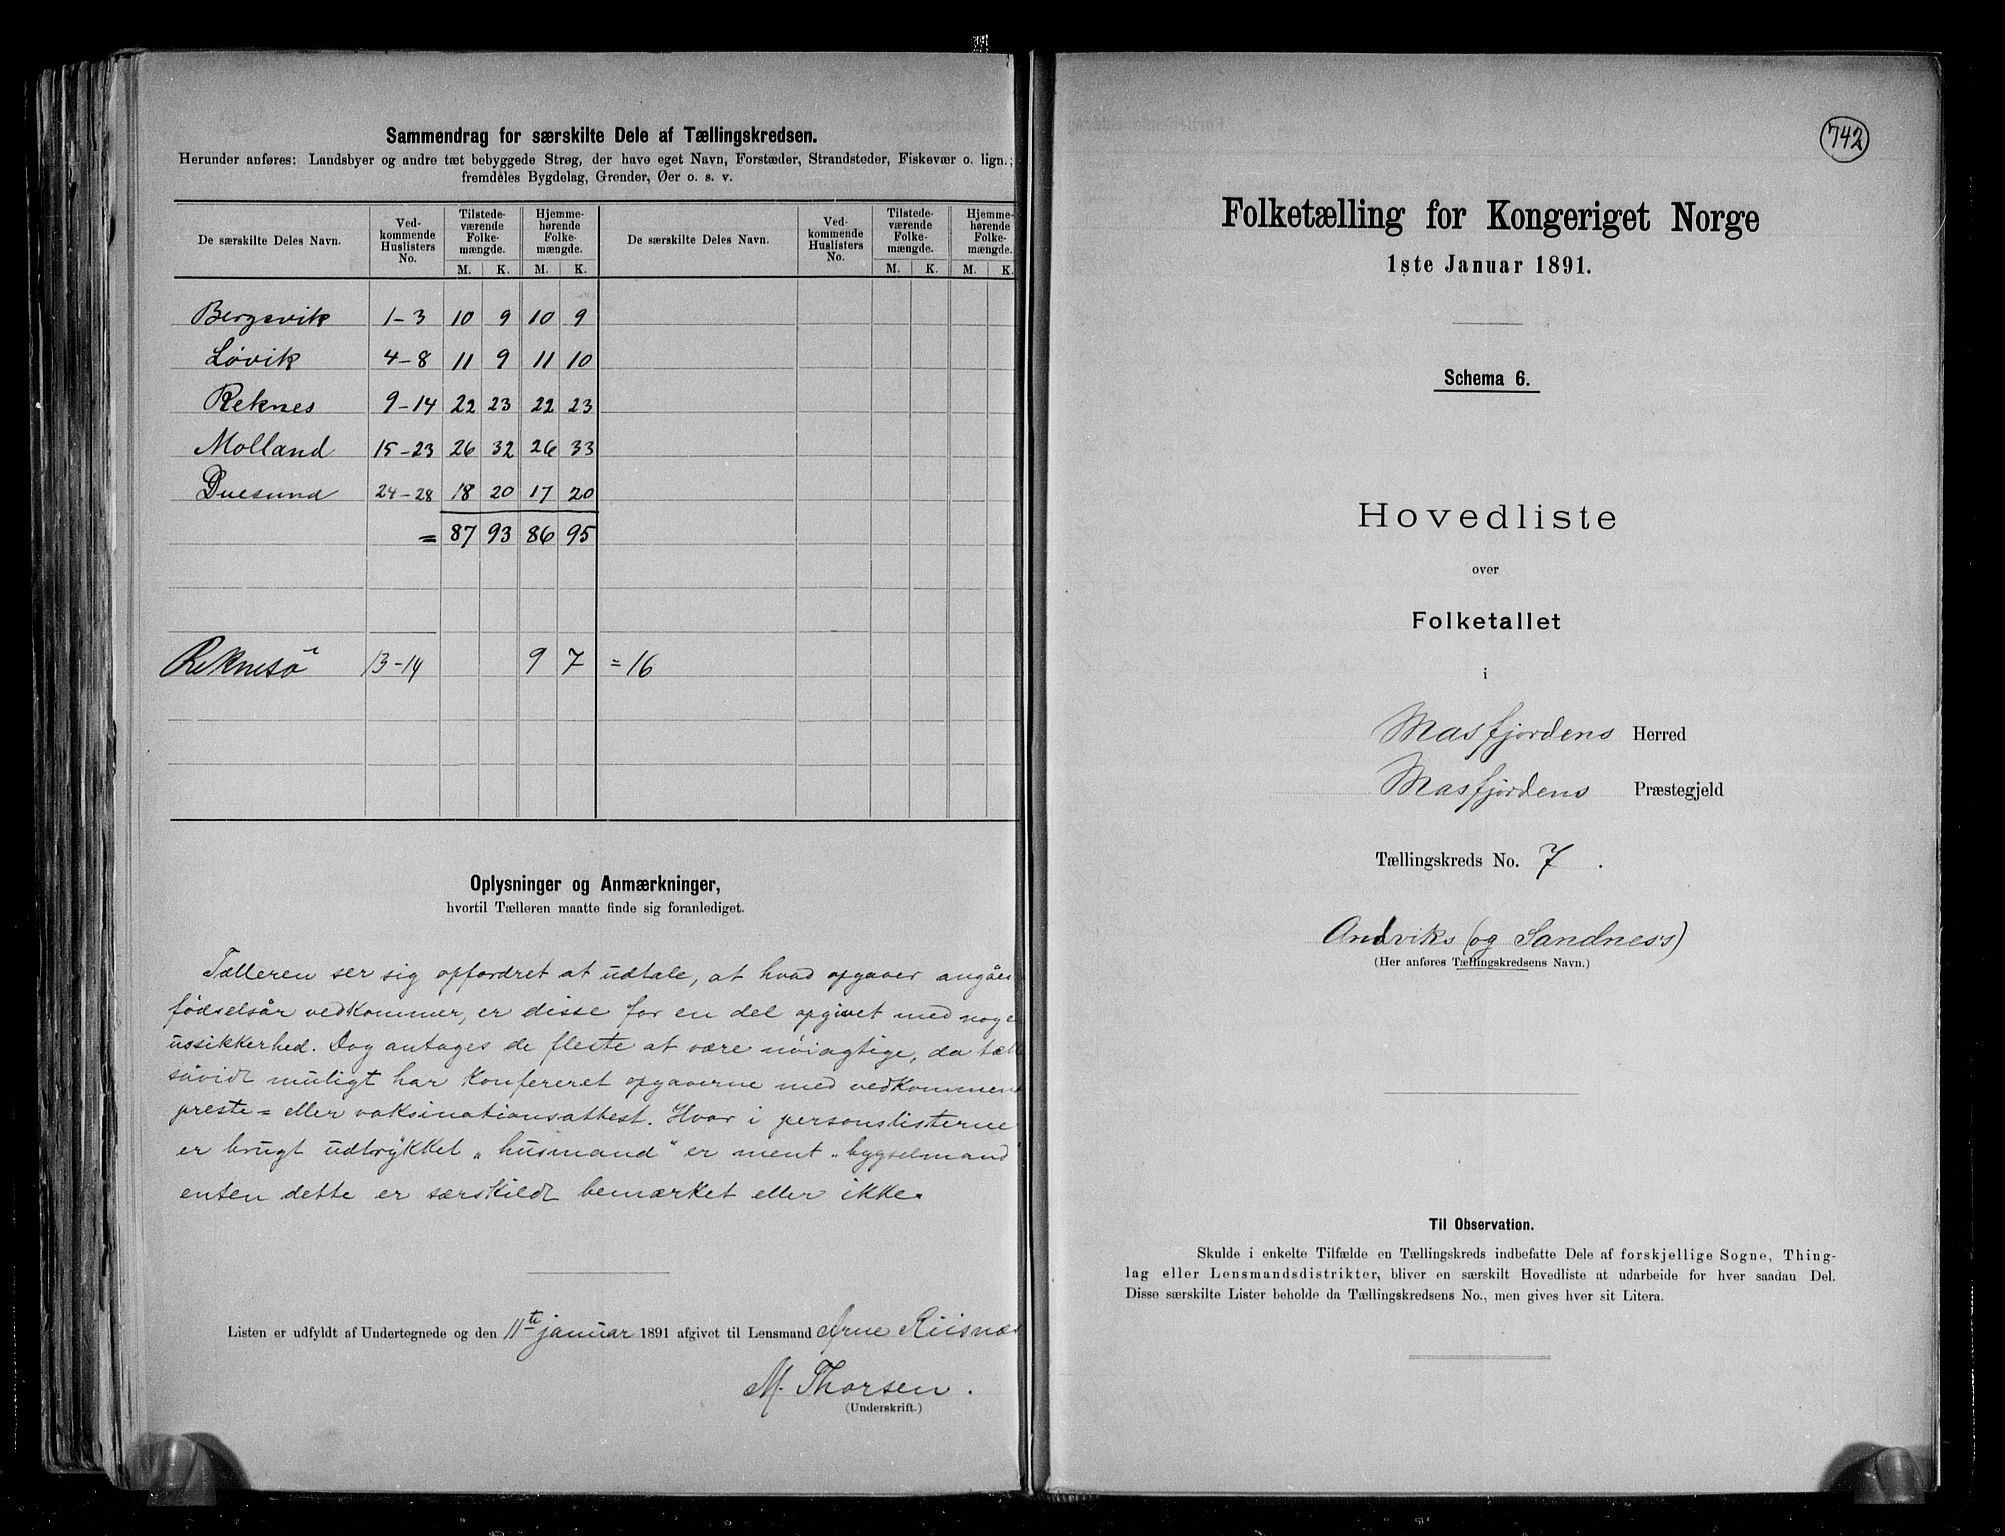 Sammendrag for særskilte Dele af Tællingskredsen.
Herunder anføres: Landsbyer og andre tæt bebyggede Strøg, der have eget Navn, Forstæder, Strandsteder, Fiskevær o. lign.;
fremdeles Bygdelag, Grender, Øer o. s. v.
De særskilte Deles Navn. Ved-kommende Huslisters No. Tilstede-værende Folke-mængde. Hjemme-hørende Folke-mængde. De særskilte Deles Navn. Ved-kommende Huslisters No. Tilstede-værende Folke-mængde. Hjemme-hørende Folke-mængde.
M. K. M. K. M. K. M. K.
Bergsvik 1-3 10 9 10 9
Løvik 4-8 11 9 11 10
Reknes 9-14 22 23 22 23
Molland 15-23 26 32 26 33
Duesund 24-28 18 20 17 20
= 87 93 86 95
Reknesö 13-14 9 7 = 16
Oplysninger og Anmærkninger,
hvortil Tælleren maatte finde sig foranlediget.
Tælleren ser sig opfordret at udtale, at hvad opgaver angåen
fødselsår vedkommer, er disse for en del opgivet med noge
ussikkerhed. Dog antages de fleste at være nöiagtige, da tæll
såvidt muligt har konfereret opgaverne med vedkommend
preste= eller vaksinationsattest. Hvor i personslisterne
er brugt udtrykket „husmand" er ment „bygselmand
enten dette er særskildt bemærket eller ikke.
Listen er udfyldt af Undertegnede og den 11te januar 1891 afgivet til Lensmand Arne Riisnæs
M. Thorsen.
(Underskrift.)
742
Folketælling for Kongeriget Norge
1ste Januar 1891.
Schema 6.
Hovedliste
over
Folketallet
i
Masfjordens Herred
Masfjordens Præstegjeld
Tællingskreds No. 7.
Andviks (og Sandness)
(Her anføres Tællingskredsens Navn.)
Til Observation.
Skulde i enkelte Tilfælde en Tællingskreds indbefatte Dele af forskjellige Sogne, Thing-
lag eller Lensmandsdistrikter, bliver en særskilt Hovedliste at udarbeide for hver saadan Del.
Disse særskilte Lister beholde da Tællingskredsens No., men gives hver sit Litera.